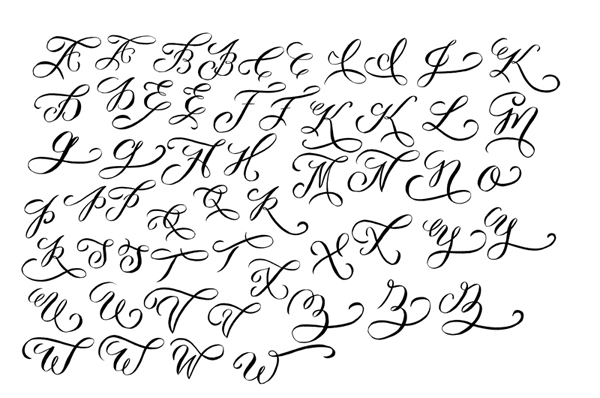 A A B B C C I I J K
D D E E F F K K L M
G G H H M N N O
P P P Q Q R
R S S T T X X X Y Y
U U V V Z Z Z
W W W W